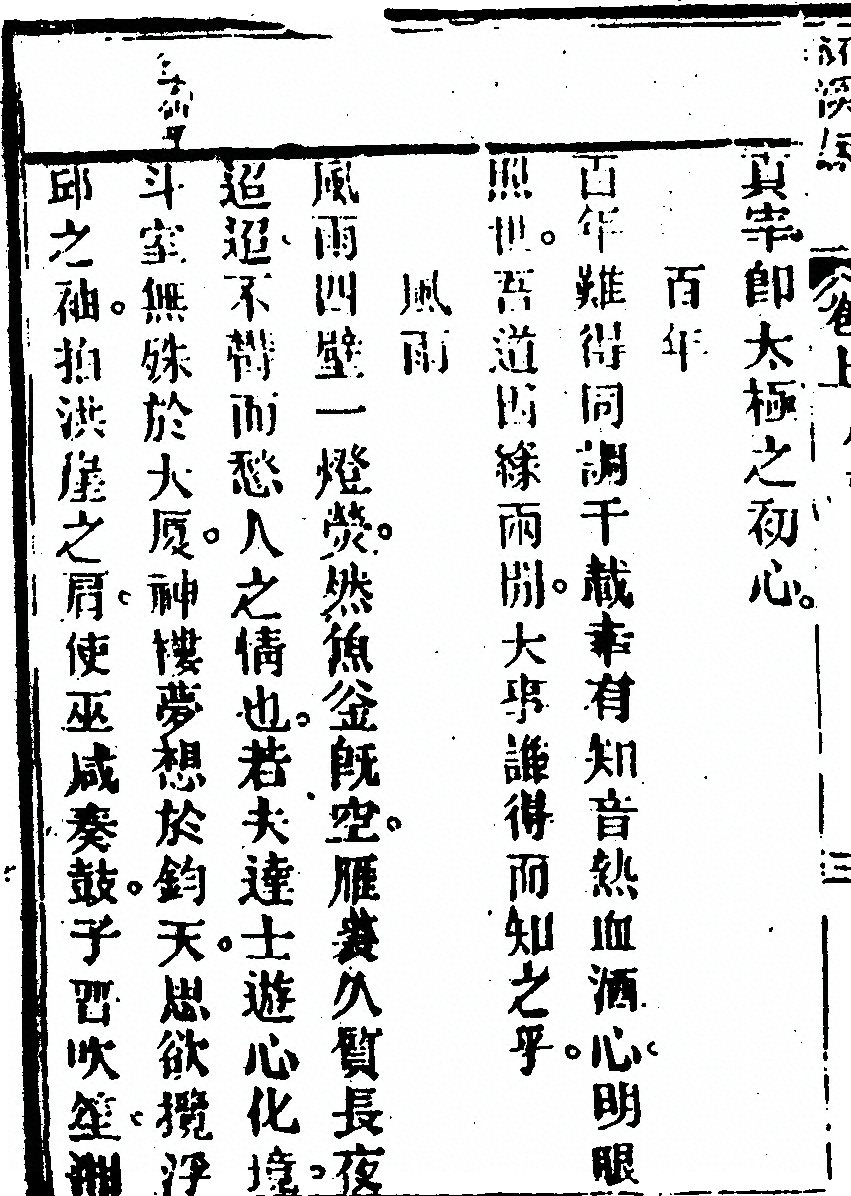 真宰即太極之初心。
百年
百年難得同調千載幸有知音熱血洒心明眼
照世。吾道因緣兩關。大事誰得而知之乎。
風雨
風雨四壁一燈熒。然魚釜既空。雁裘久質長夜
迢迢不彎而愁人之情也。若夫達士遊心化境。
斗室無殊於大廈。神樓夢想於鈞天。思欲攬浮
邱之袖。拍洪崖之肩使巫咸奏鼓。子晉吹笙湘
卷上
三